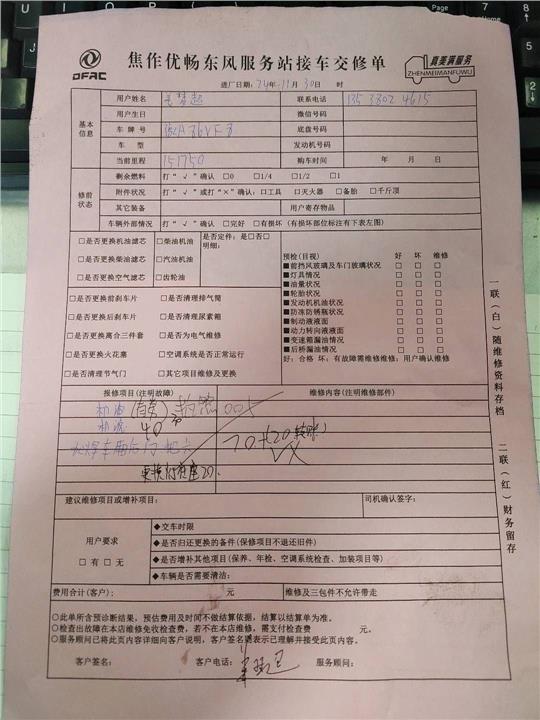 DFAC
焦作优畅东风服务站接车交修单
真美满服务
ZHENMEIMANFUWU
进厂日期:24年11月30日 时
基本信息
用户姓名 联系电话 135 3802 4615
用户生日 微信号码
车牌号 底盘号码
车型 发动机号码
当前里程 151750 购车时间 年 月 日
修前状态
剩余燃料 打“√”确认 □0 □1/4 □1/2 □1
附件状况 打“√”或打“×”确认:□工具 □灭火器 □备胎 □千斤顶
其它装备 用户寄存物品
车辆外部情况 打“√”确认 □完好 □有损坏(有损坏部位标注有下表左图)
□是否更换机油滤芯 □柴油机油 是否定件:是□否□
明细:
□是否更换柴油滤芯 □汽油机油
□是否更换空气滤芯 □齿轮油
□是否更换前刹车片 □是否清理排气筒
□是否更换后刹车片 □是否清理尿素箱
□是否更换离合三件套 □是否为电气维修
□是否更换火花塞 □空调系统是否正常运行
□是否清理节气门 □其它项目维修及更换
预检(目视) 好 坏 维修
■前挡风玻璃及车门玻璃状况 □ □ □
■灯具情况 □ □ □
■油量状况 □ □ □
■轮胎状况 □ □ □
■发动机机油状况 □ □ □
■防冻防锈瓶状况 □ □ □
■制动液液面 □ □ □
■动力转向液液面 □ □ □
■变速箱漏油情况 □ □ □
■后桥漏油情况 □ □ □
好:合格 坏:有故障需维修维修:用户确认维修
报修项目(注明故障) 维修内容(注明维修部件)
机油(自带)
机滤 40
70+(20转账)
VX
20.
建议维修项目或增补项目: 司机确认签字:
用户要求
□有□无
◆交车时限
◆是否归还更换的备件(保修项目不退还旧件)
◆是否增补其他项目(保养、年检、空调系统检查、加装项目等)
◆车辆是否需要清洁:
费用合计(客户): 元 维修及三包件不允许带走
○此单所含预诊断结果,预估费用及时间不做结算依据,结算以结算单为准。
○检查出故障在本店维修免收检查费,若不在本店维修,需支付检查费 元。
○服务顾问已将此页内容详细向客户说明,客户签名 表示理解并接受此页内容。
客户签名: 客户电话: 服务顾问:
一联(白)随维修资料存档
二联(红)财务留存